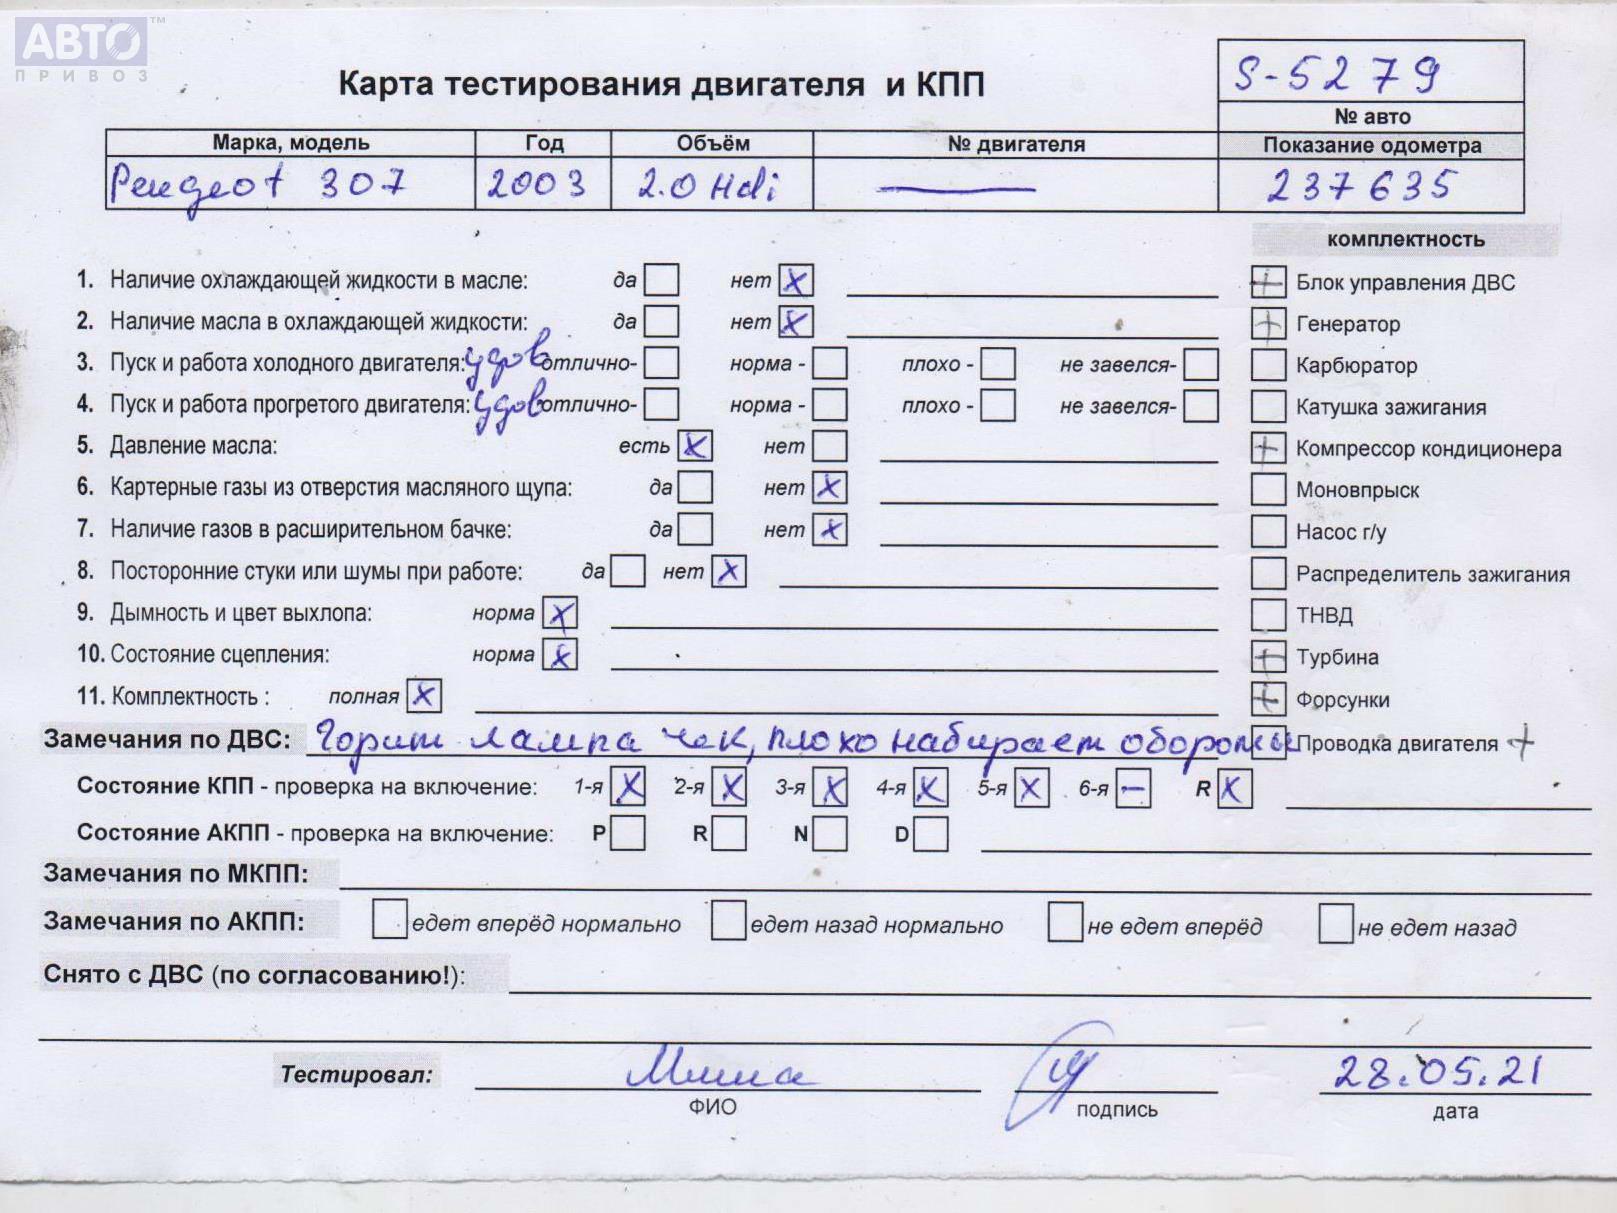 АВТО ™
ПРИВОЗ
Карта тестирования двигателя и КПП
S-5279
№ авто
Марка, модель Год Объём № двигателя Показание одометра
Peugeot 307 2003 2.0 Hdi — 237635
комплектность
1. Наличие охлаждающей жидкости в масле: да нет X
Блок управления ДВС +
2. Наличие масла в охлаждающей жидкости: да нет X
Генератор +
3. Пуск и работа холодного двигателя: удов отлично- норма - плохо - не завелся-
Карбюратор
4. Пуск и работа прогретого двигателя: удов отлично- норма - плохо - не завелся-
Катушка зажигания
5. Давление масла: есть X нет
Компрессор кондиционера +
6. Картерные газы из отверстия масляного щупа: да нет X
Моновпрыск
7. Наличие газов в расширительном бачке: да нет X
Насос г/у
8. Посторонние стуки или шумы при работе: да нет X
Распределитель зажигания
9. Дымность и цвет выхлопа: норма X
ТНВД
10. Состояние сцепления: норма X
Турбина +
11. Комплектность : полная X
Форсунки +
Замечания по ДВС: Горит лампа чек, плохо набирает обороты
Проводка двигателя +
Состояние КПП - проверка на включение: 1-я X 2-я X 3-я X 4-я X 5-я X 6-я — R X
Состояние АКПП - проверка на включение: P R N D
Замечания по МКПП:
Замечания по АКПП: едет вперёд нормально едет назад нормально не едет вперёд не едет назад
Снято с ДВС (по согласованию!):
Тестировал: Миша 28.05.21
ФИО подпись дата